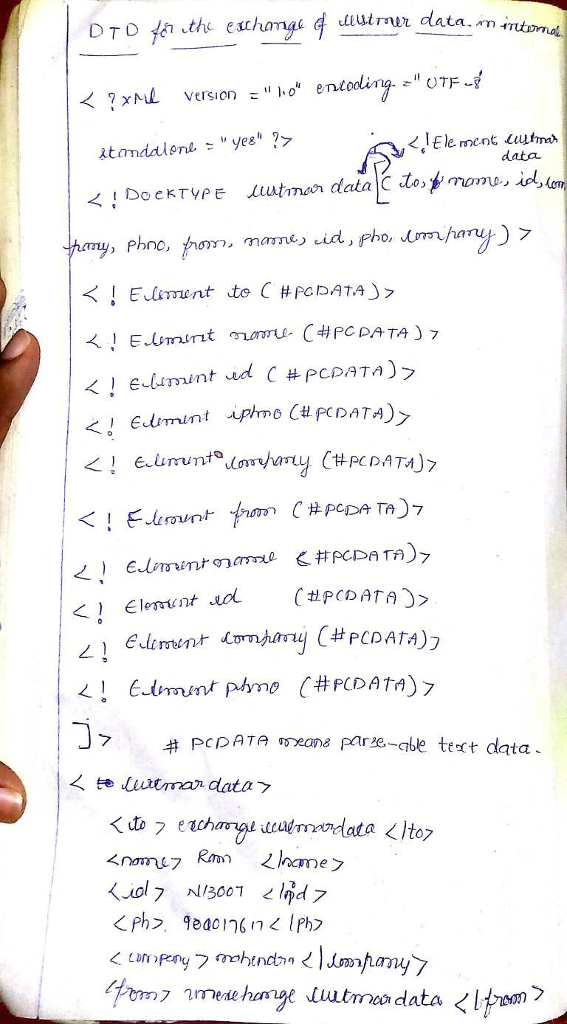 DTD for the exchange of custmer data in internal
< ? xMl version = "1.0" encoding = "UTF-8
standalone = "yes" ?>
<! Element custmar data
< ! DOCKTYPE custmar data [ ( to, name, id, com
pany, phno, from, name, id, pho, company ) >
< ! Element to ( #PCDATA )>
< ! Element name (#PCDATA )>
< ! Element id ( #PCDATA )>
< ! Element phno (#PCDATA)>
< ! Element company (#PCDATA)>
< ! Element from (#PCDATA)>
< ! Element name (#PCDATA)>
< ! Element id (#PCDATA)>
< ! Element company (#PCDATA)>
< ! Element phno (#PCDATA)>
]> # PCDATA means parse-able text data.
< custmar data >
<to > exchange custmardata </to>
<name> Ram </name>
<id> N13007 </id>
<Ph> 980017617 </Ph>
< company > mahendra </company>
<from> custmardata </from>